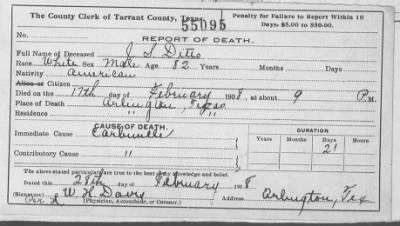 The County Clerk of Tarrant County, Texas
55095
Penalty for Failure to Report Within 10 Days, $5.00 to $50.00.
No.
REPORT OF DEATH.
Full Name of Deceased J. S. Ditto
Race White Sex Male Age 82 Years Months Days
Nativity American
Alien or Citizen
Died on the 17th day of February 1908, at about 9 P.M.
Place of Death Arlington, Texas
Residence " "
CAUSE OF DEATH.
DURATION
Immediate Cause Carbuncle
Years Months Days Hours
21
Contributory Cause "
The above stated particulars are true to the best of my knowledge and belief.
Dated this 28th day of February 1908
(Signature) W. H. Davis
Address Arlington, Tex
(Physician, Accoucheur, or Coroner.)